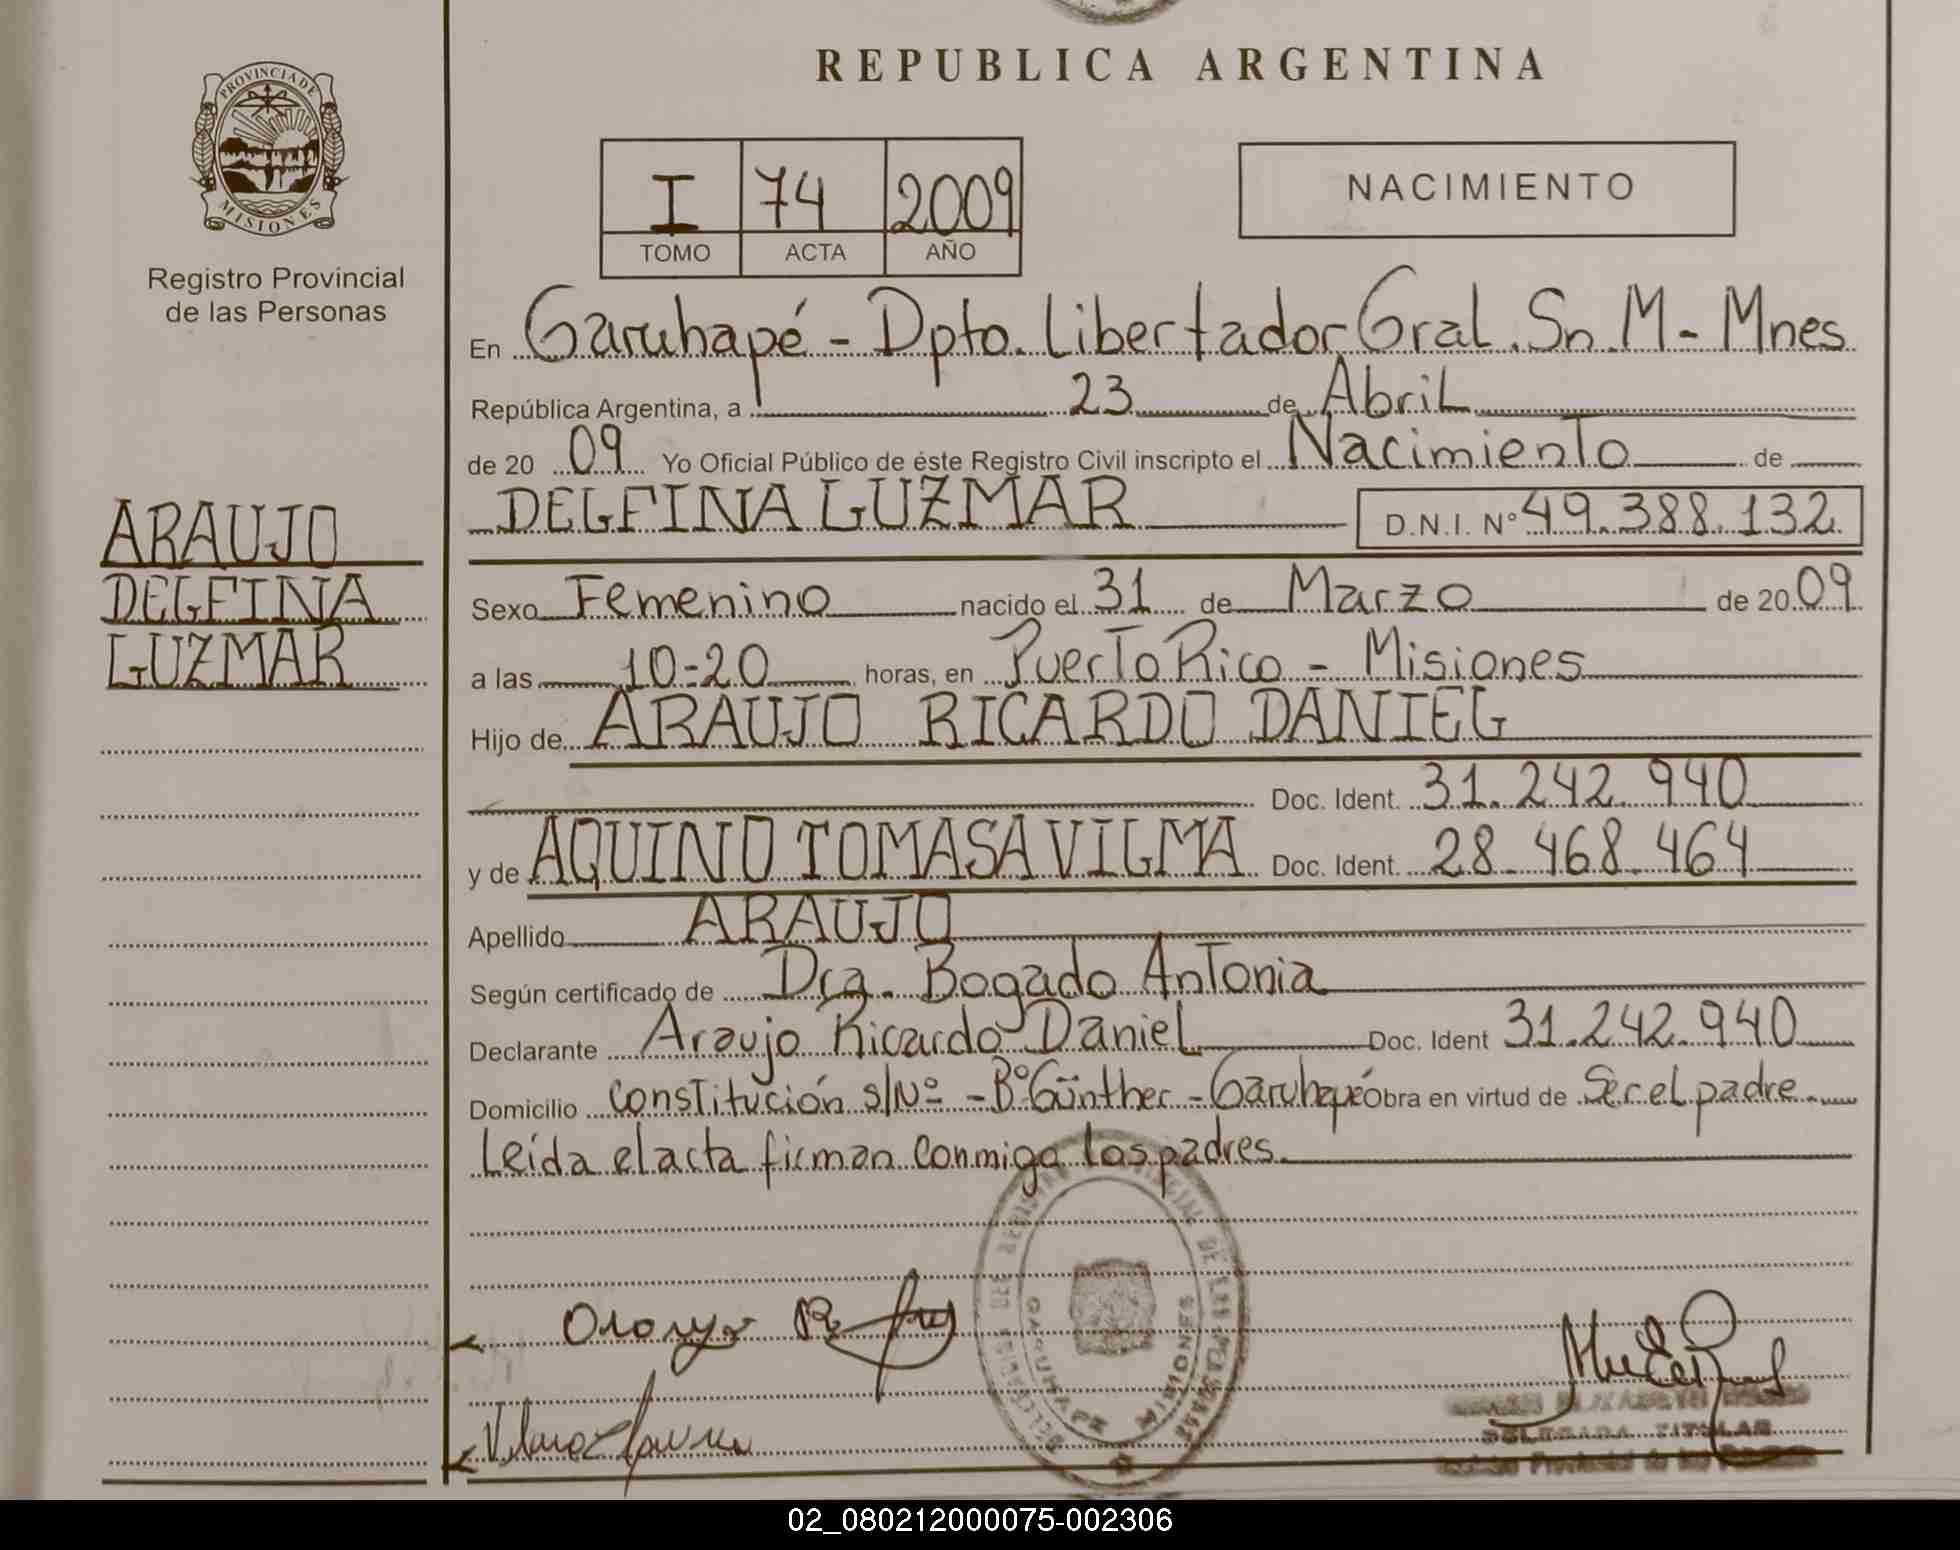 REPUBLICA ARGENTINA
PROVINCIA DE MISIONES
Registro Provincial
de las Personas
I 74 2009
TOMO ACTA AÑO
NACIMIENTO
En Garuhapé - Dpto. Libertador Gral. Sn. M - Mnes
República Argentina, a 23 de Abril
de 20 09 Yo Oficial Público de éste Registro Civil inscripto el Nacimiento de
DELFINA LUZMAR D.N.I. N° 49.388.132
ARAUJO
DELFINA
LUZMAR
Sexo Femenino nacido el 31 de Marzo de 20 09
a las 10:20 horas, en Puerto Rico - Misiones
Hijo de ARAUJO RICARDO DANIEL
Doc. Ident. 31.242.940
y de AQUINO TOMASA VILMA Doc. Ident. 28.468.464
Apellido ARAUJO
Según certificado de Dra. Bogado Antonia
Declarante Araujo Ricardo Daniel Doc. Ident 31.242.940
Domicilio Constitución s/Nº - Bº Günther - Garuhapé Obra en virtud de Ser el padre.
Leída el acta firman conmigo los padres.
GARUHAPE MISIONES
DELEGADA TITULAR
Registro Provincial de las Personas
02_080212000075-002306